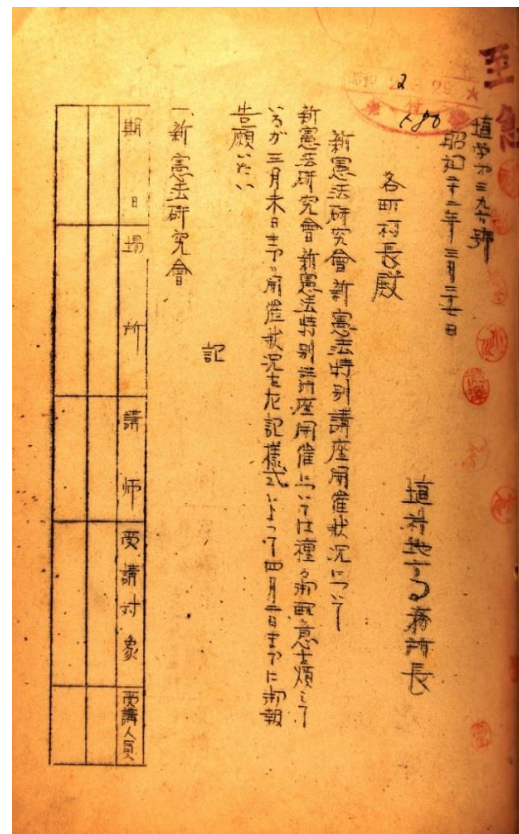 至急
埴学第三九六號
昭和二十二年三月二十七日
埴科地方事務所長
各町村長殿
新憲法研究會新憲法特別講座開催状況について
新憲法研究會新憲法特別講座開催については種々御配意を煩して
いるが三月末日までの開催状況を左記様式によって四月二日までに御報
告願いたい
記
一、新憲法研究會
期日 場所 講師 受講対象 受講人員